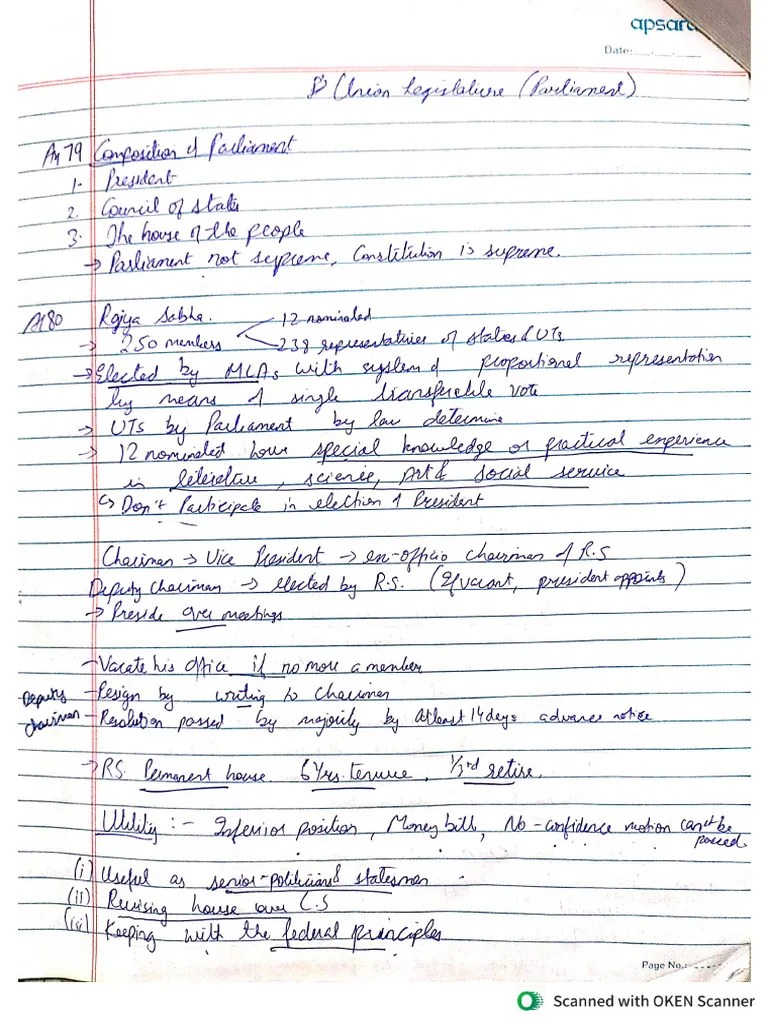 apsara
Date:
Union Legislature (Parliament)
Art 79 Composition of Parliament
1. President
2. Council of states
3. The house of the people
→ Parliament not supreme, Constitution is supreme.
Art 80 Rajya Sabha. 12 nominated
→ 250 members 238 representatives of states & UTs
→ Elected by MLAs with system of proportional representation
by means of single transferable vote
→ UTs by Parliament by law determine
→ 12 nominated have special knowledge or practical experience
in literature, science, Art & social service
↳ Don't Participate in election of President
Chairman → Vice President → ex-officio chairman of R.S
Deputy Chairman → elected by R.S. (If vacant, president appoints)
→ Preside over meetings
- Vacate his office if no more a member
Deputy - Resign by writing to Chairman
chairman - Resolution passed by majority by atleast 14 days advance notice
→ RS. Permanent house. 6 yrs. tenure, 1/3rd retire.
Utility :- Inferior position, Money bill, No-confidence motion can't be
passed
(i) Useful as senior-politician & statesman
(ii) Revising house over L.S
(iii) Keeping with the federal principles
Page No.:
Scanned with OKEN Scanner